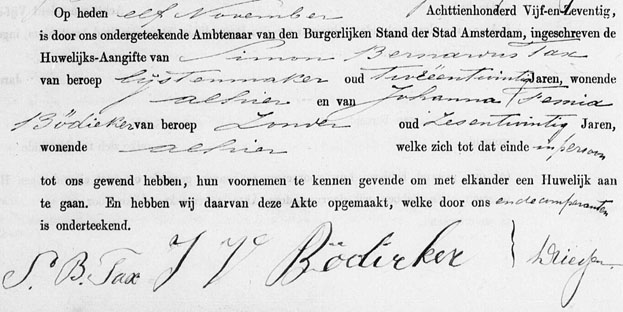 Op heden elf November Achttienhonderd Vijf-en-Zeventig,
is door ons ondergeteekende Ambtenaar van den Burgerlijken Stand der Stad Amsterdam, ingeschreven de
Huwelijks-Aangifte van Simon Bernardus Tax
van beroep lijstenmaker oud tweeëntwintig Jaren, wonende
alhier en van Johanna Femia
Bödieker van beroep Zonder oud Zesentwintig Jaren,
wonende alhier welke zich tot dat einde in persoon
tot ons gewend hebben, hun voornemen te kennen gevende om met elkander een Huwelijk aan
te gaan. En hebben wij daarvan deze Akte opgemaakt, welke door ons en de comparanten
is onderteekend.
S. B. Tax J F Bödieker